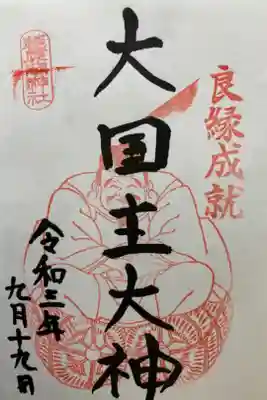 良縁成就
大国主大神
令和三年
九月十九日